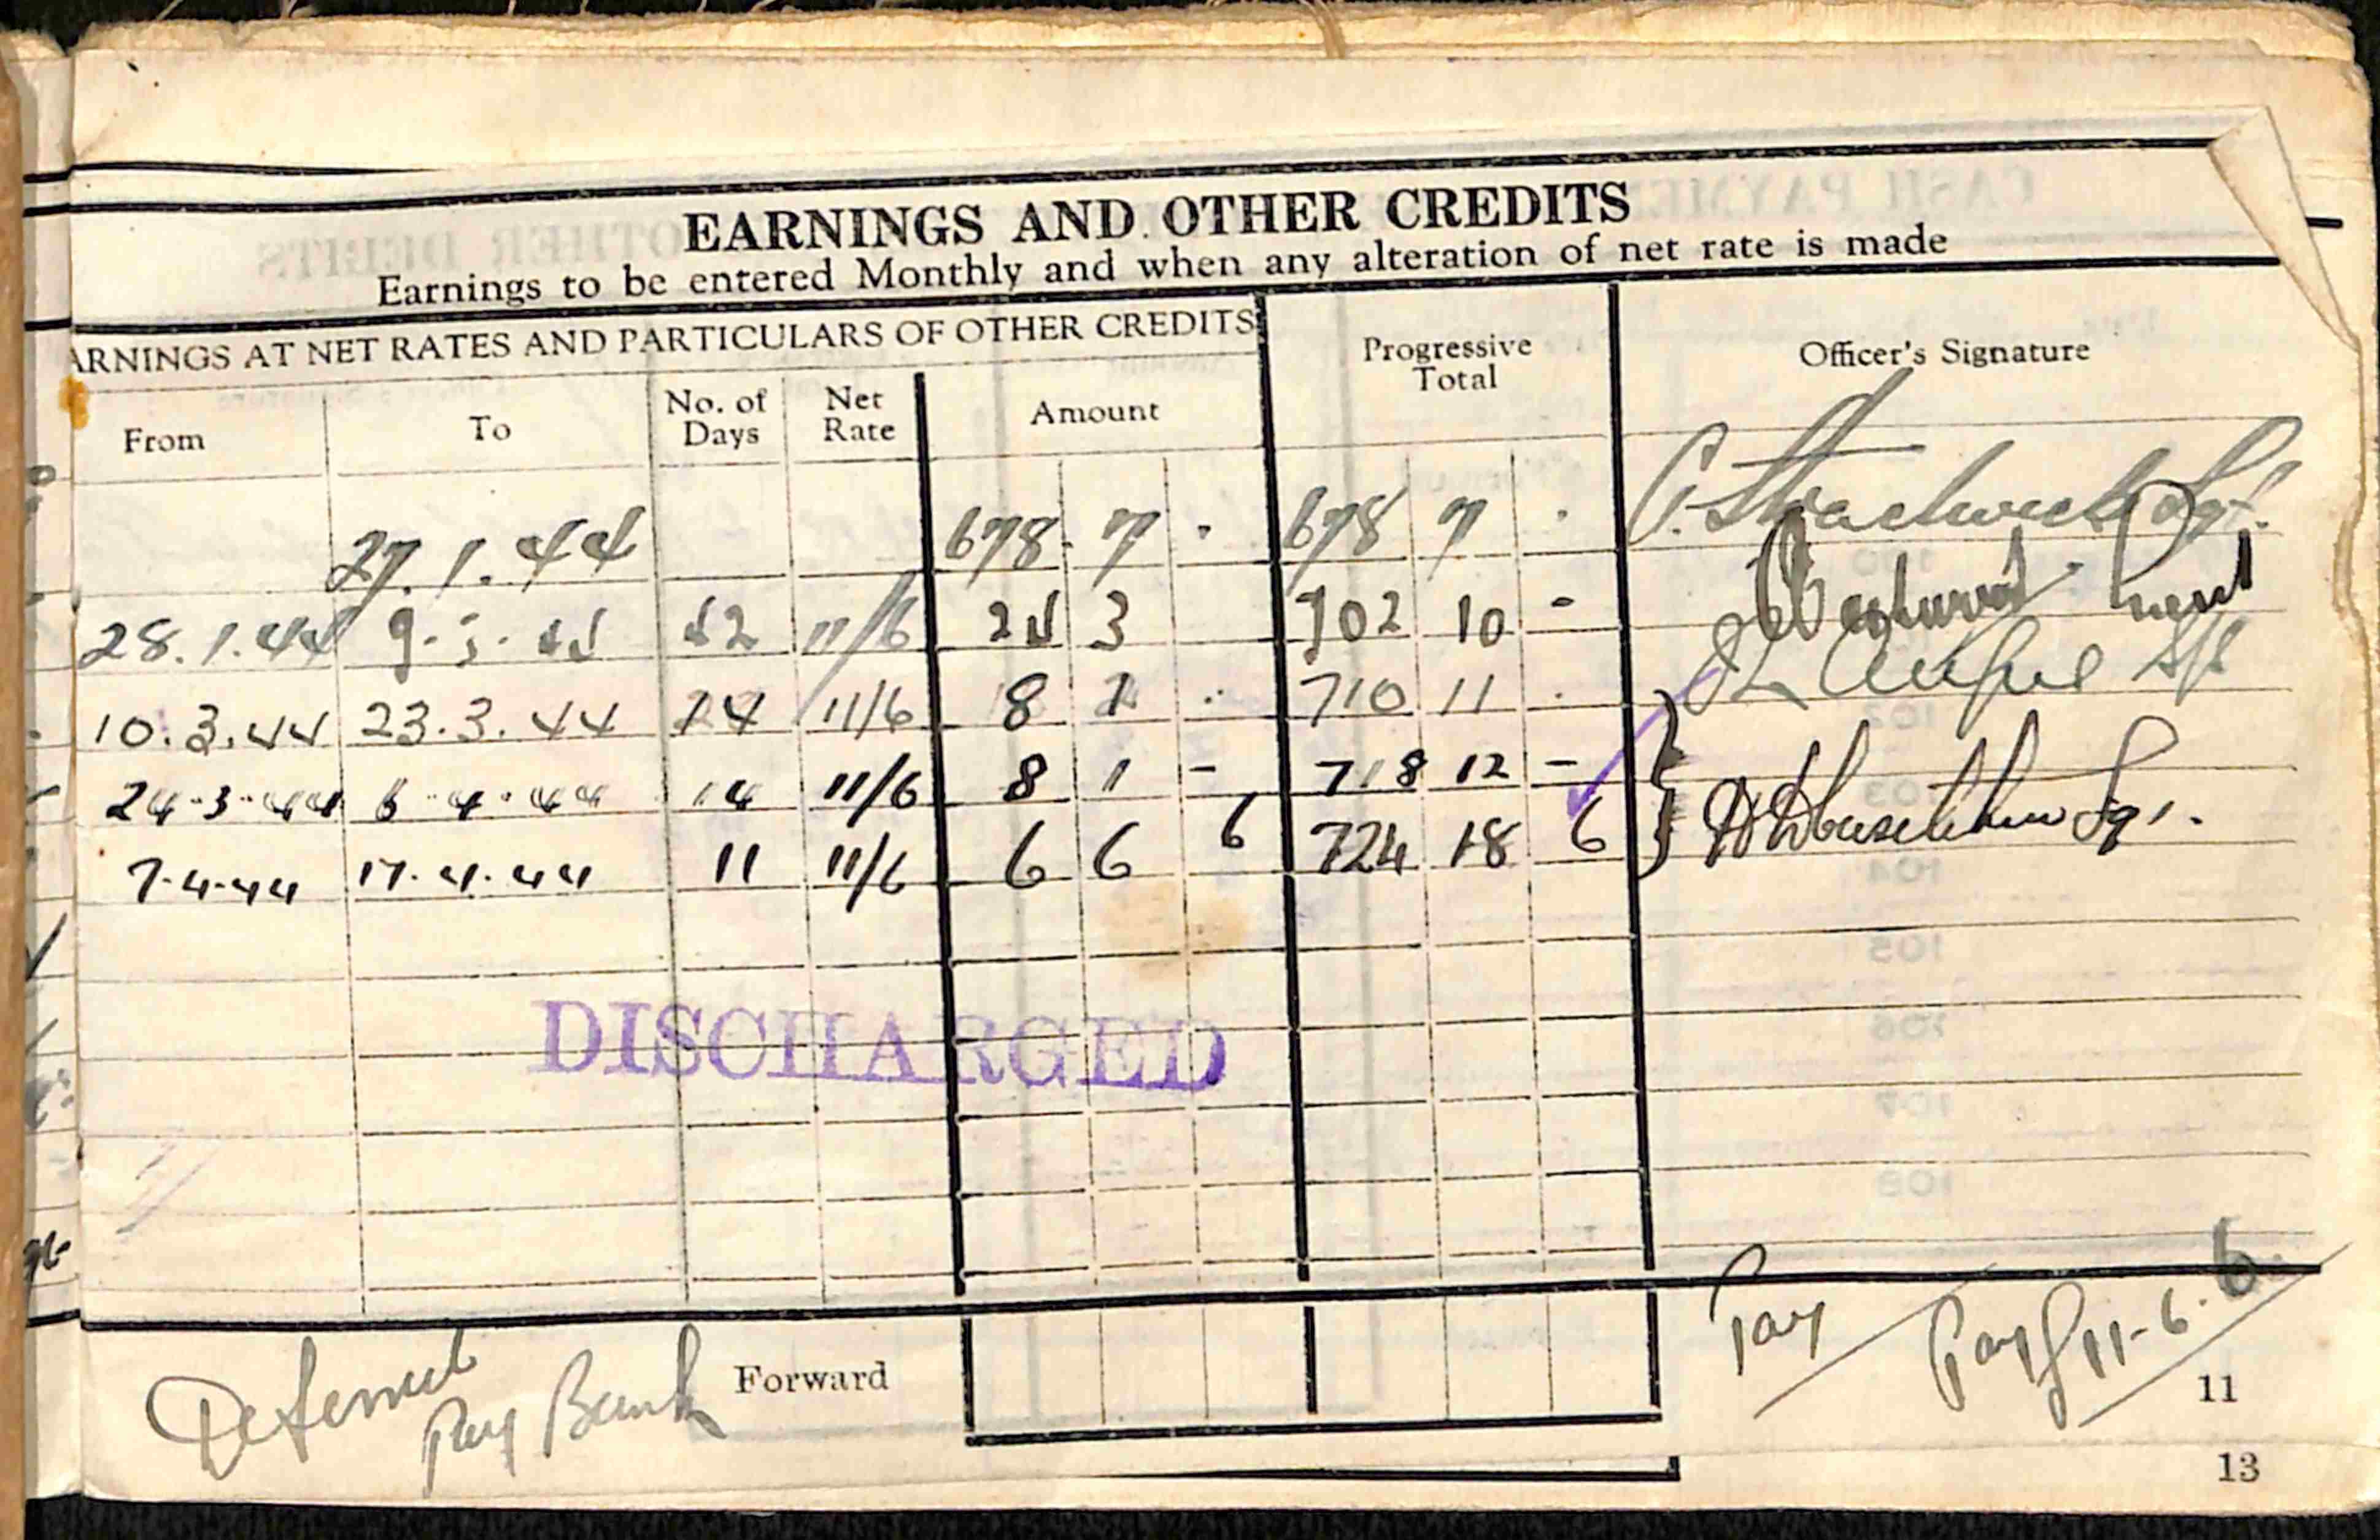 EARNINGS AND OTHER CREDITS
Earnings to be entered Monthly and when any alteration of net rate is made
ARNINGS AT NET RATES AND PARTICULARS OF OTHER CREDITS Progressive Total Officer's Signature
From To No. of Days Net Rate Amount
27.1.44 678 7 - 678 7 -
28.1.44 9.3.44 42 11/6 24 3 702 10 -
10.3.44 23.3.44 14 11/6 8 1 - 710 11 -
24-3-44 6-4-44 14 11/6 8 1 - 718 12 -
7-4-44 17.4.44 11 11/6 6 6 6 724 18 6
DISCHARGED
Forward
Deferred Pay Book
Pay
Pay £11-6-6
11
13